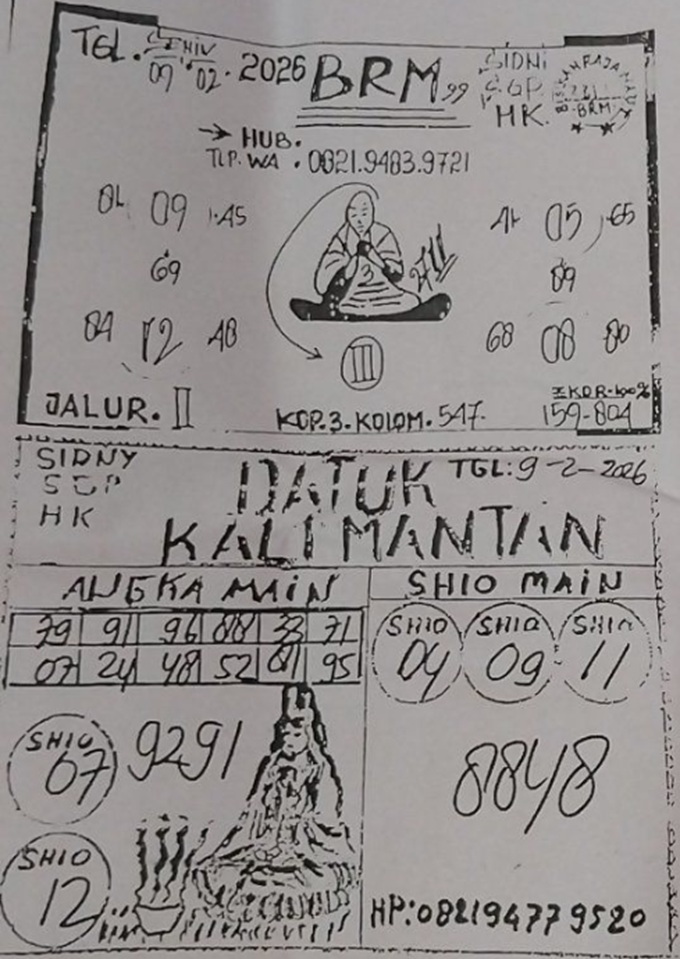 TGL. SENIN 09.02.2026 BRM 99
SIDNI
SGP.
HK.
BRM
→ HUB.
TLP. WA. 0821.9483.9721
09 45
05 65
69
09
84 12 48
68 08 80
3
2711
III
JALUR. II
KOP. 3. KOLOM. 547.
EKOR-100%
159-804
SIDNY
SGP
HK
DATUK
KALIMANTAN
TGL: 9-2-2026
ANGKA MAIN
79 91 96 88 33 71
07 24 48 52 01 95
SHIO MAIN
SHIO 04
SHIO 09
SHIO 11
SHIO 07
9291
8848
SHIO 12
HP: 082194779520